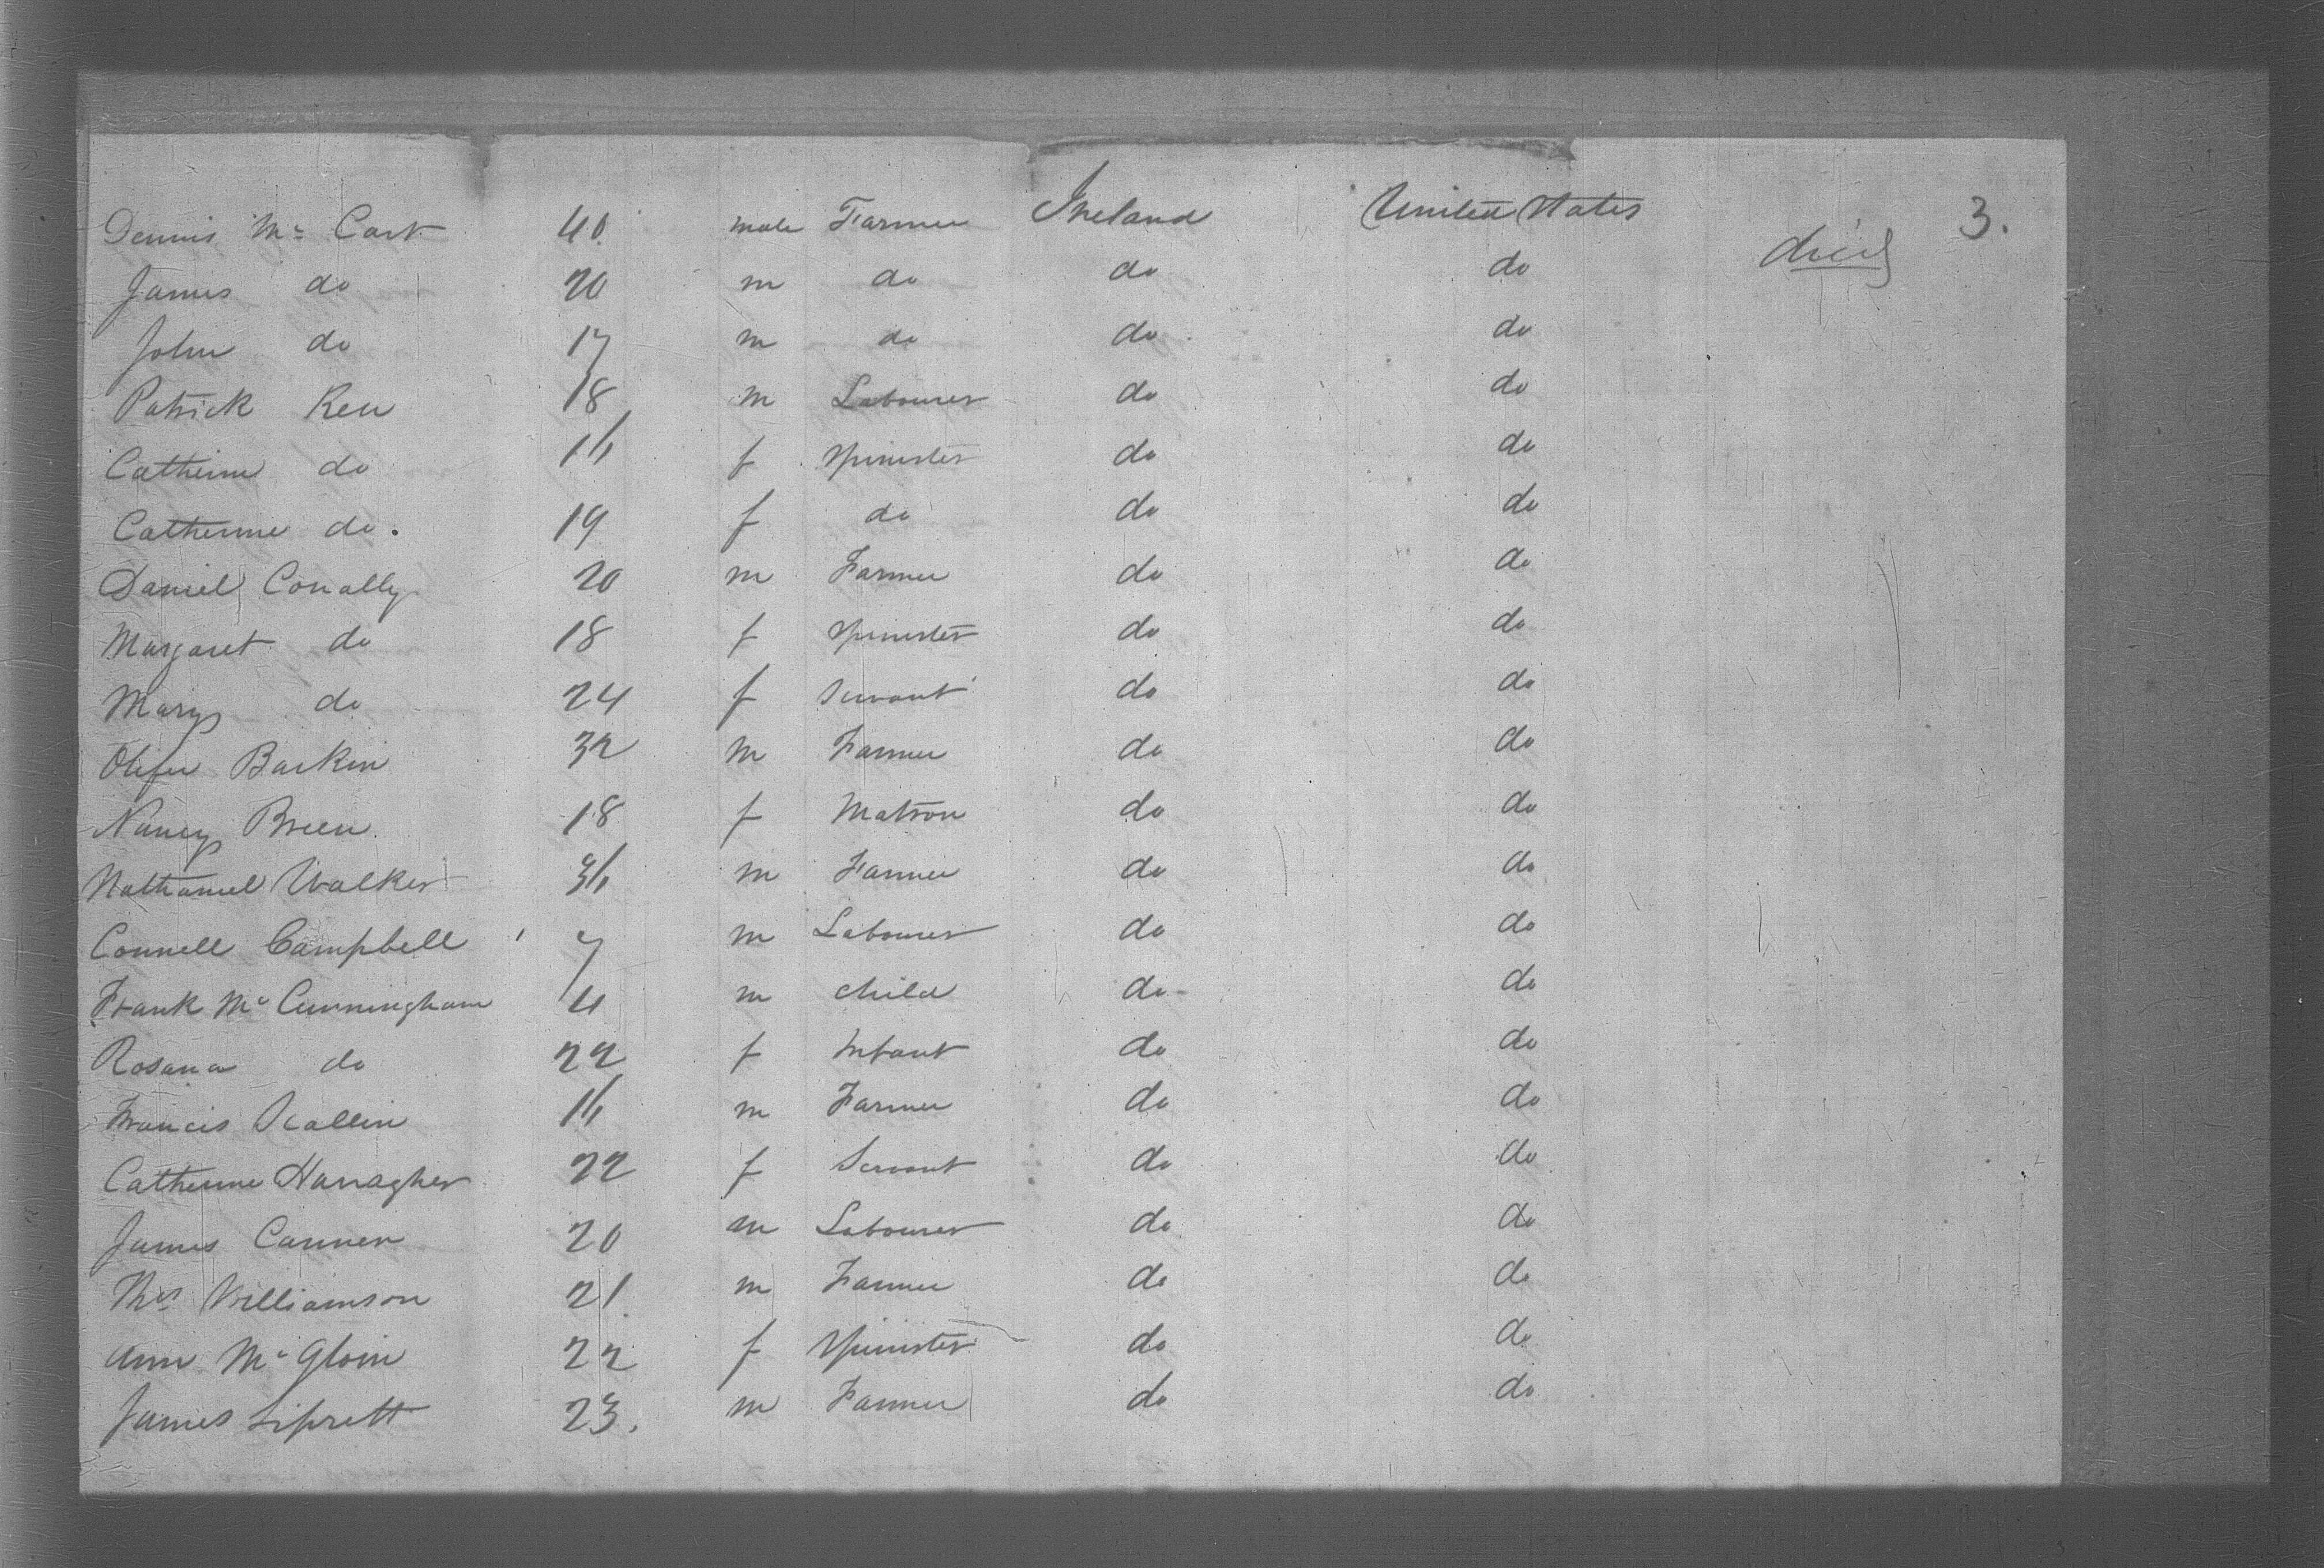 3.
Dennis Mc Cart 40. male Farmer Ireland United States died
James do 20 m do do do
John do 17 m do do do
Patrick Keu 18 m Labourer do do
Catherine do 16 f Spinster do do
Catherine do. 19 f do do do
Daniel Conally 20 m Farmer do do
Margaret do 18 f Spinster do do
Mary do 24 f Servant do do
Olifer Barkin 32 m Farmer do do
Nancy Breen 18 f Matron do do
Nathaniel Walker 36 m Farmer do do
Connell Campbell 7 m Labourer do do
Frank Mc Cunningham 4 m child do do
Rosana do 22 f Infant do do
Francis Scallin 16 m Farmer do do
Catherine Harragher 22 f Servant do do
James Cannen 20 m Labourer do do
Thos Williamson 21. m Farmer do do
Ann Mc Gloin 22 f Spinster do do
James Liprett 23. m Farmer do do